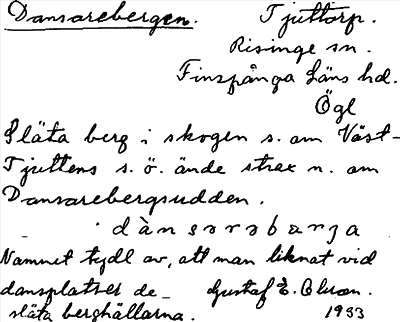 Dansarebergen. Tjuttorp.
Risinge sn.
Finspånga Läns hd.
Ögl
Släta berg i skogen s. om Väst-
Tjuttens s. ö. ände strax n. om
Dansarebergsudden.
dànsarəbærja
Namnet tydl av, att man liknat vid
dansplatser de Gustaf E. Olson.
släta berghällarna. 1933